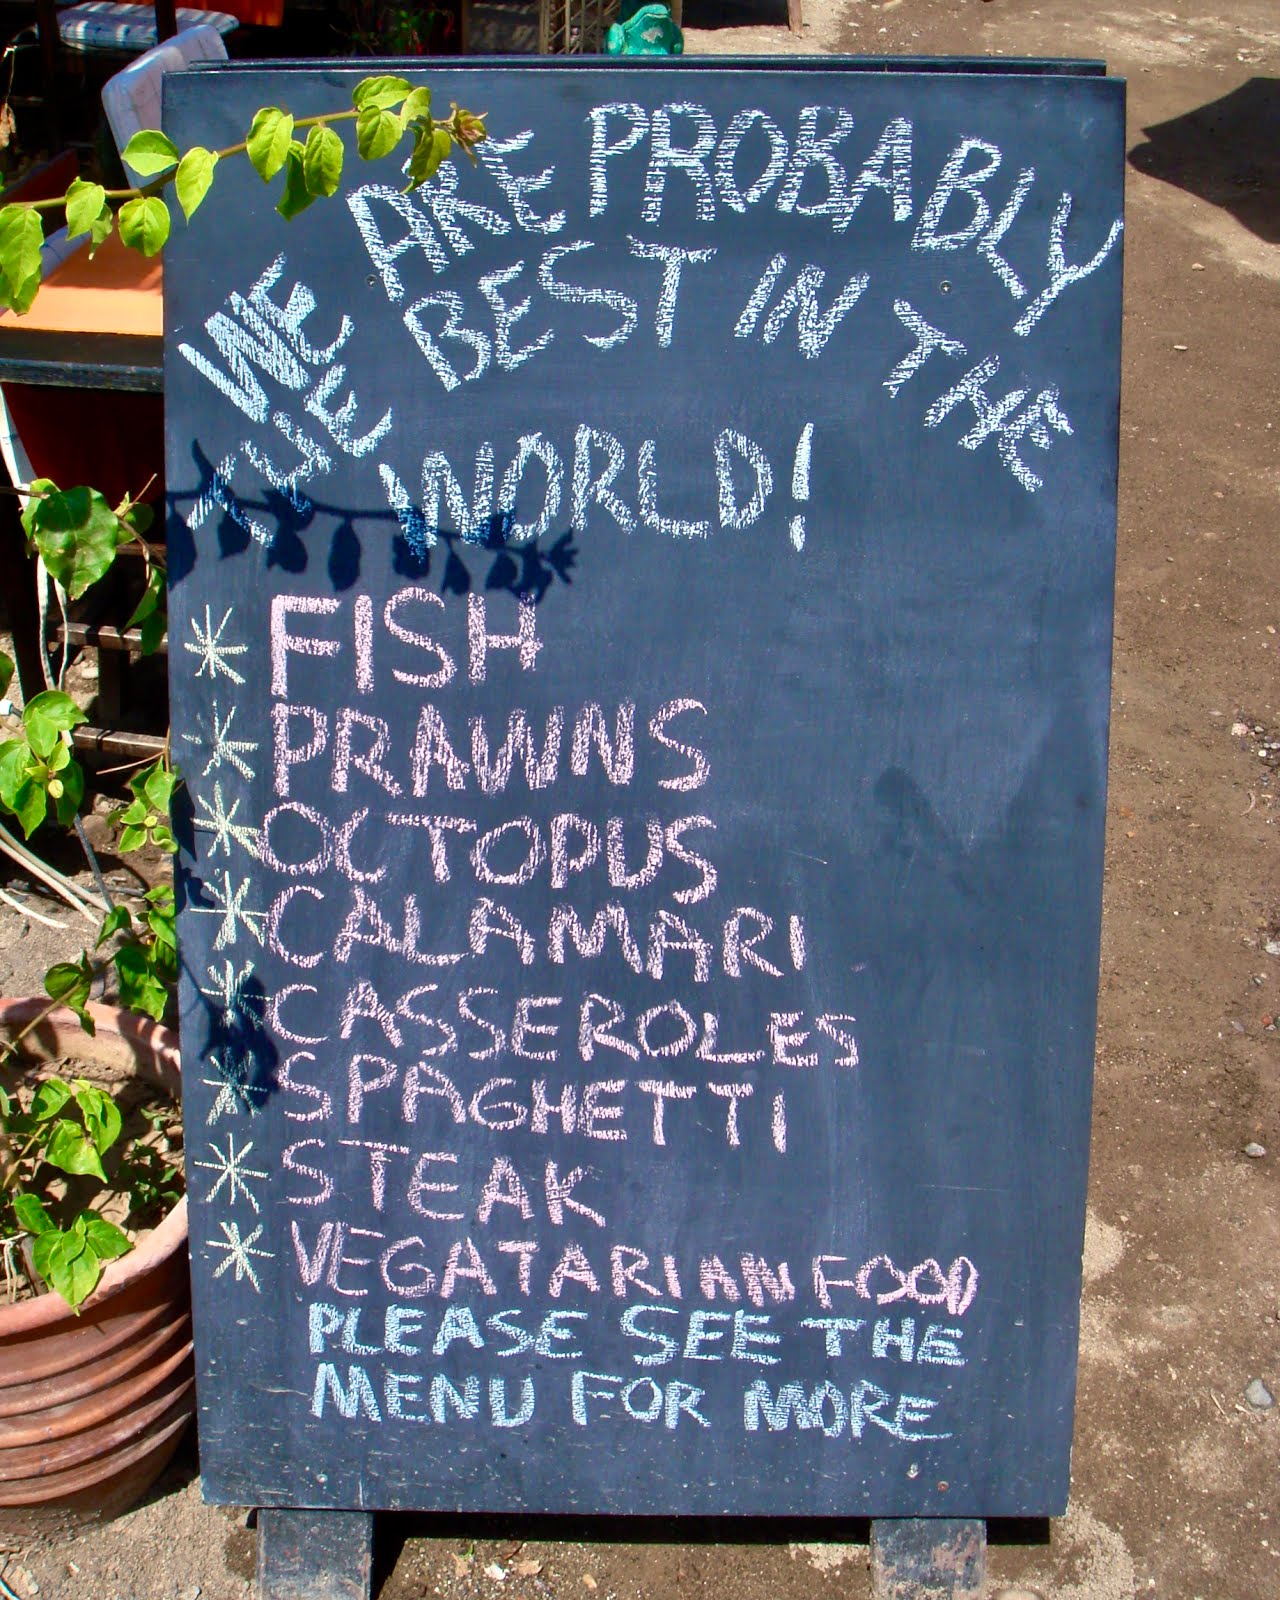 WE ARE PROBABLY
THE BEST IN THE
WORLD!
* FISH
* PRAWNS
* OCTOPUS
* CALAMARI
* CASSEROLES
* SPAGHETTI
* STEAK
* VEGATARIAN FOOD
PLEASE SEE THE
MENU FOR MORE